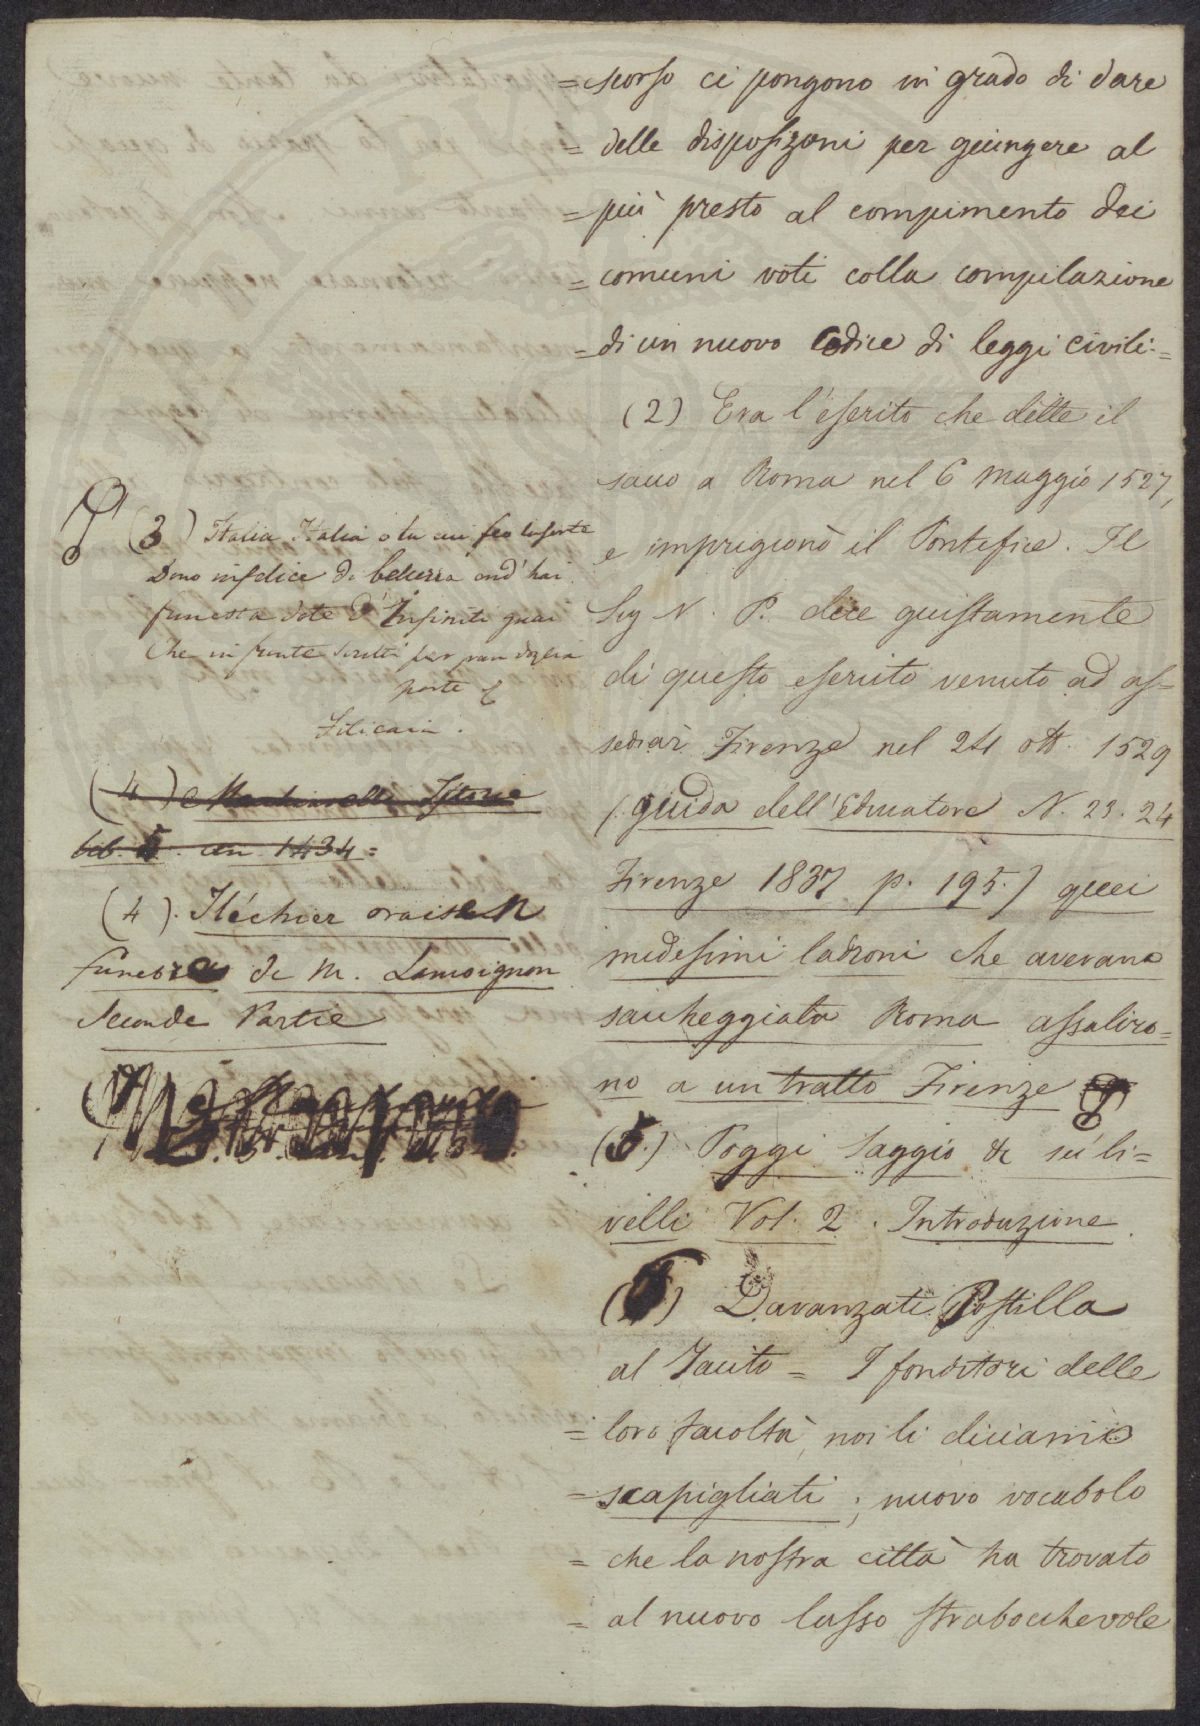 =scorso ci pongono in grado di dare
= delle disposizioni per giungere al
= più presto al compimento dei
= comuni voti colla compilazione
= di un nuovo Codice di leggi civili:=
(2) Era l'esercito che dette il
sacco a Roma nel 6 Maggio 1527,
e imprigionò il Pontefice. Il
Sig N. P. dice giustamente
di questo esercito venuto ad as=
sediar Firenze nel 24 ott. 1529
(guida dell'Educatore N. 23. 24
Firenze 1837 p. 195.) quei
medesimi ladroni che avevano
saccheggiata Roma assaliro=
no a un tratto Firenze
(5.) Poggi Saggio di su' li=
velli Vol. 2. Introduzione.
Davanzati Postilla
al Tacito = I fonditori delle
= loro facoltà, noi li diciamo
= scapigliati; nuovo vocabolo
= che la nostra città ha trovato
= al nuovo lusso strabocchevole
(3) Italia Italia o tu cui feo la sorte
Dono infelice di bellezza ond'hai
funesta dote d'Infiniti guai
Che in fronte scritti per gran doglia
porte
Filicaia.
(4) e Istorie
lib. 5. an 1434=
(4). Fléchier oraison
funebre de M. Lamoignon
Seconde Partie